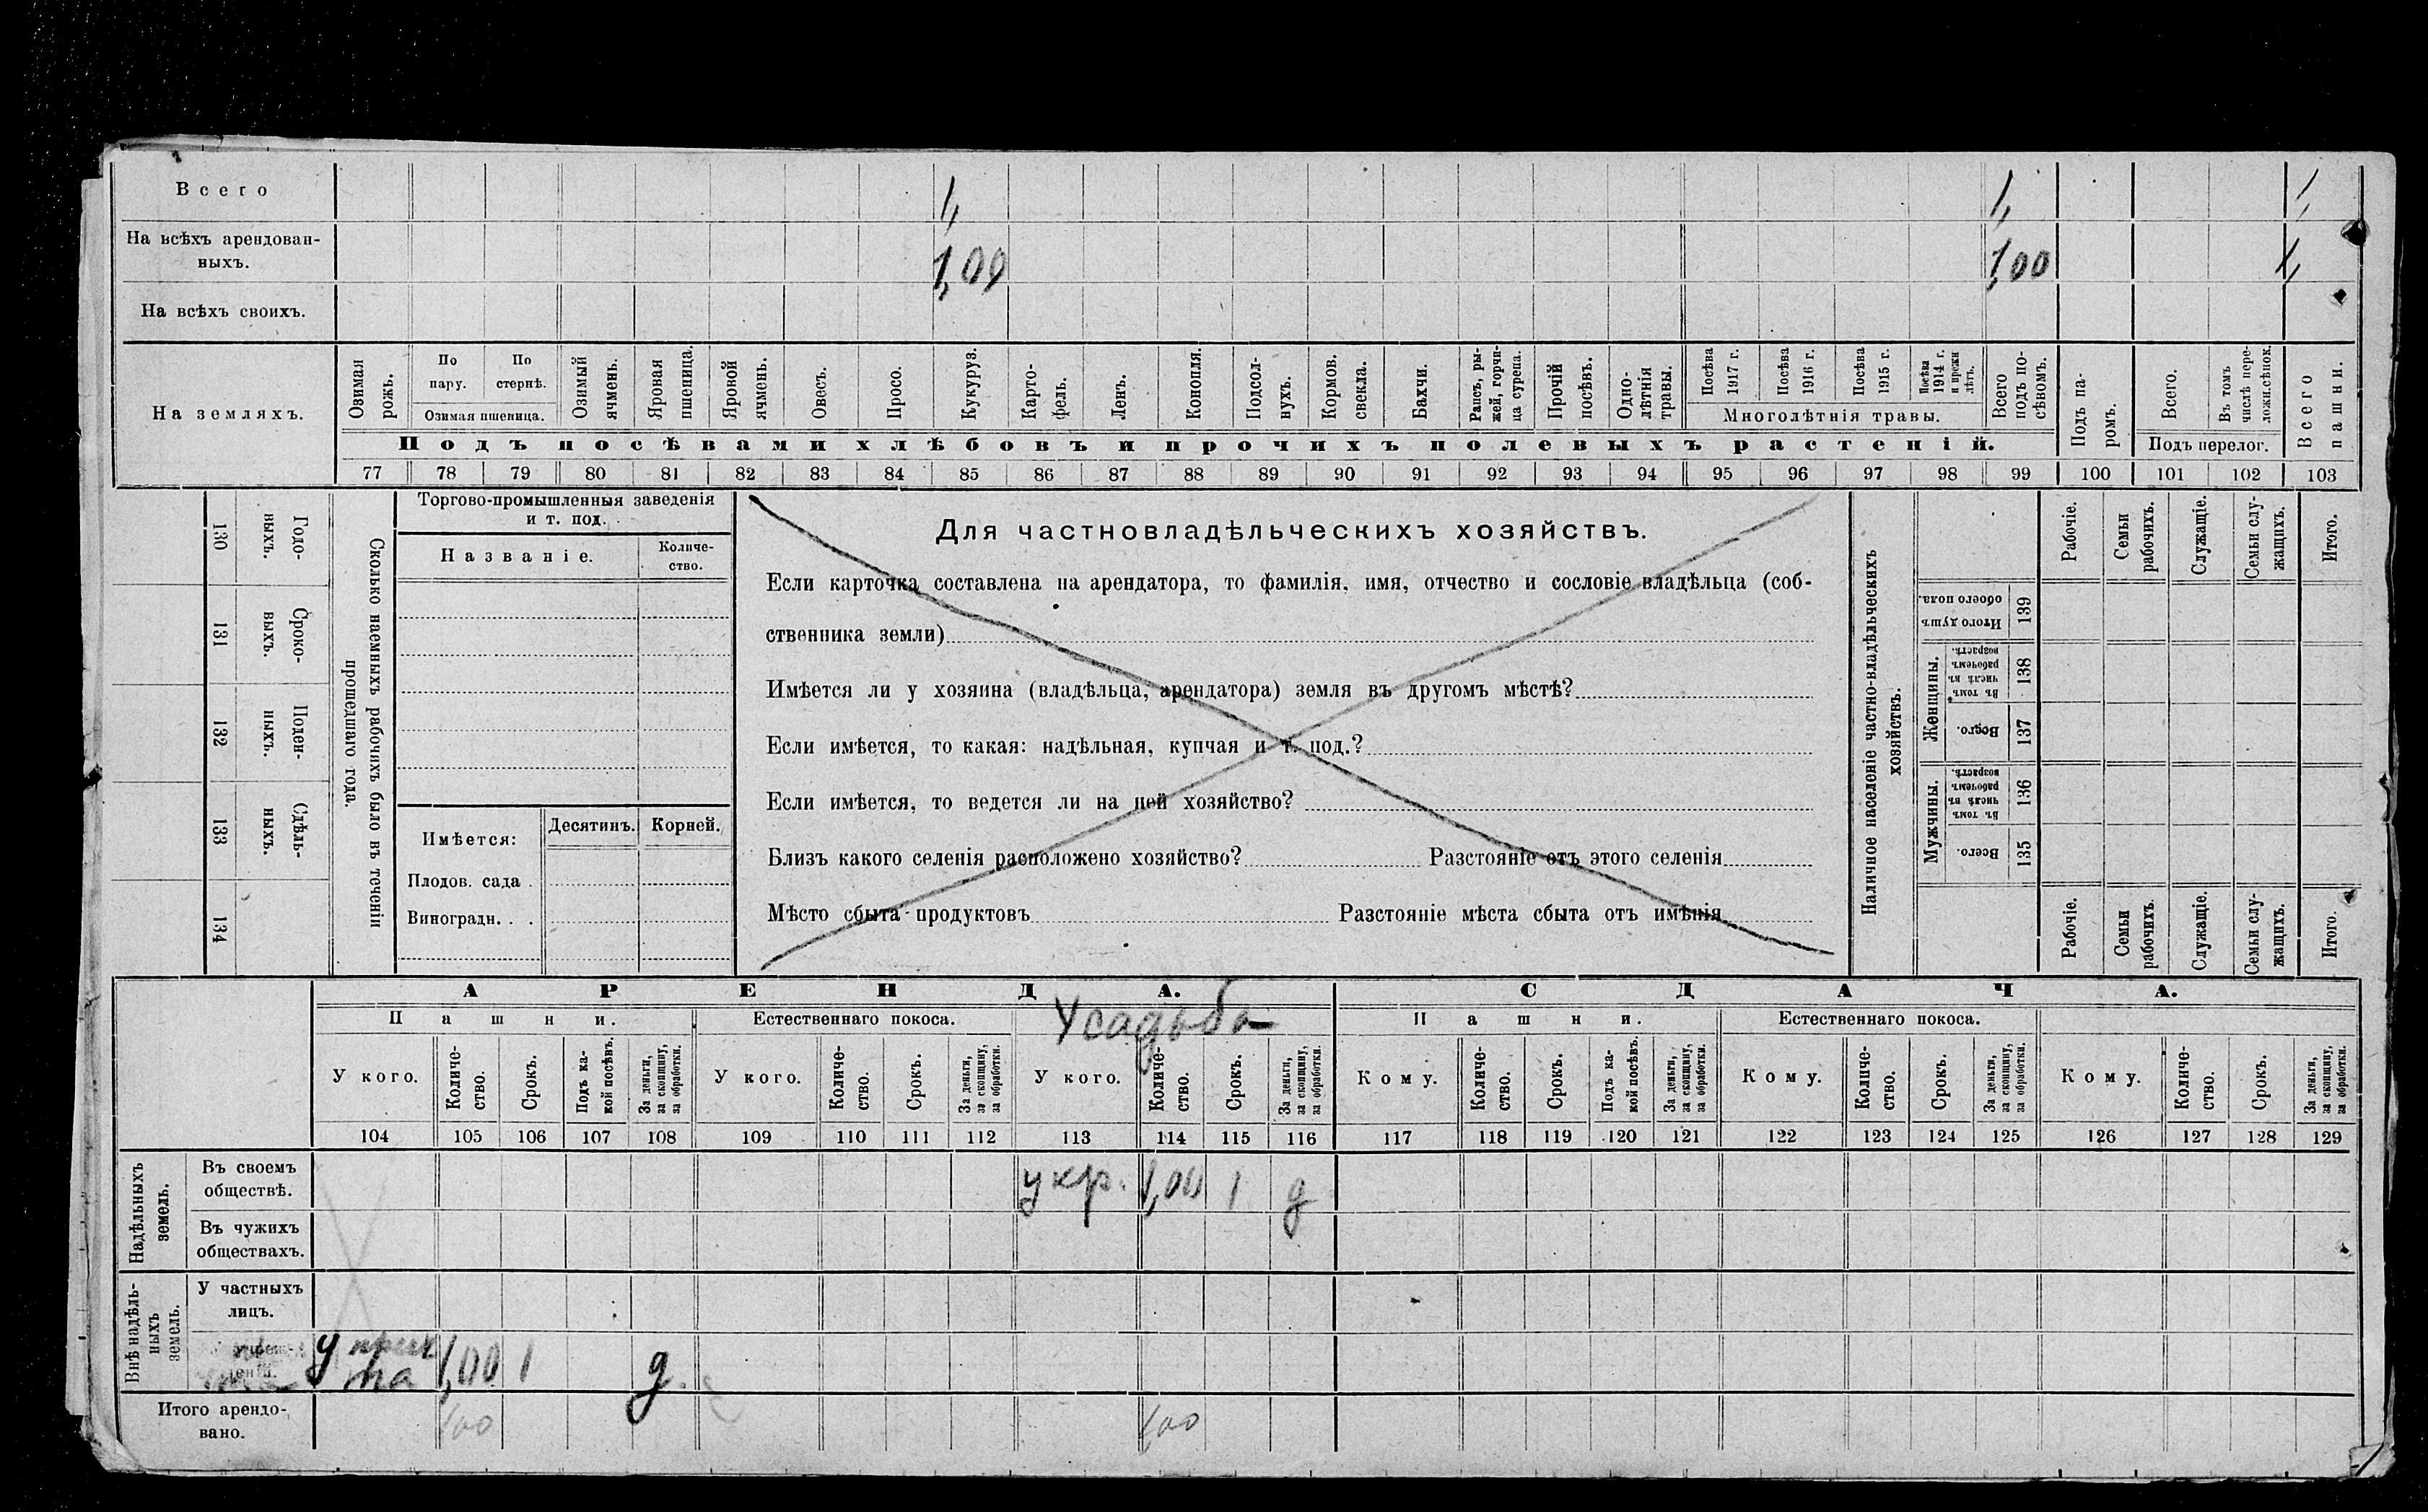 Всего 1, 1, 1,
На всѣхъ арендован-
ныхъ. 1,00 1,00 1,
На всѣхъ своихъ.
На земляхъ.
Озимая рожь.
По пару.
По стернѣ.
Озимая пшеница.
Озимый ячмень.
Яровая пшеница.
Яровой ячмень.
Овесъ.
Просо.
Кукуруз.
Карто-
фель.
Ленъ.
Конопля.
Подсол-
нухъ.
Кормов.
свекла.
Бахчи.
Рапсъ, ры-
жей, горчи-
ца сурепка.
Прочій
посѣвъ.
Одно-
лѣтнія
травы.
Посѣва
1917 г.
Посѣва
1916 г.
Посѣва
1915 г.
Посѣва
1914 г.
и прежн
лѣтъ.
Многолѣтнія травы.
Всего
подъ по-
сѣвомъ.
Подъ па-
ромъ.
Всего.
Въ томъ
числѣ пере-
ложн.сѣнок.
Подъ перелог.
Всего
пашни.
Подъ посѣвами хлѣбовъ и прочихъ полевыхъ растеній.
77 78 79 80 81 82 83 84 85 86 87 88 89 90 91 92 93 94 95 96 97 98 99 100 101 102 103
130 Годо-
выхъ.
131 Сроко-
выхъ.
132 Поден-
ныхъ.
133 Сдѣль-
ныхъ.
134
Сколько наемныхъ рабочихъ было въ теченіи
прошедшаго года.
Торгово-промышленныя заведенія
и т. под.
Названіе.
Количе-
ство.
Имѣется:
Десятинъ.
Корней.
Плодов. сада .
Виноградн. . .
Для частновладѣльческихъ хозяйствъ.
Если карточка составлена на арендатора, то фамилія, имя, отчество и сословіе владѣльца (соб-
ственника земли)
Имѣется ли у хозяина (владѣльца, арендатора) земля въ другомъ мѣстѣ?
Если имѣется, то какая: надѣльная, купчая и т. под.?
Если имѣется, то ведется ли на ней хозяйство?
Близъ какого селенія расположено хозяйство? Разстояніе отъ этого селенія
Мѣсто сбыта продуктовъ Разстояніе мѣста сбыта отъ имѣнія
Наличное населеніе частно-владѣльческихъ
хозяйствъ.
Рабочіе.
Семьи
рабочихъ.
Служащіе.
Семьи слу-
жащихъ.
Итого.
Итого душъ
обоего пола.
139
Женщины.
Въ томъ
числѣ въ
рабочемъ
возрастѣ.
138
Всего.
137
Мужчины.
Въ томъ
числѣ въ
рабочемъ
возрастѣ.
136
Всего.
135
Рабочіе.
Семьи
рабочихъ.
Служащіе.
Семьи слу-
жащихъ.
Итого.
АРЕНДА. СДАЧА.
Пашни. Естественнаго покоса. Усадьба Пашни. Естественнаго покоса.
У кого.
Количе-
ство.
Срокъ.
Подъ ка-
кой посѣвъ.
За деньги,
за скопщину,
за обработки.
У кого.
Количе-
ство.
Срокъ.
За деньги,
за скопщину,
за обработки.
У кого.
Количе-
ство.
Срокъ.
За деньги,
за скопщину,
за обработки.
Кому.
Количе-
ство.
Срокъ.
Подъ ка-
кой посѣвъ.
За деньги,
за скопщину,
за обработки.
Кому.
Количе-
ство.
Срокъ.
За деньги,
за скопщину,
за обработки.
Кому.
Количе-
ство.
Срокъ.
За деньги,
за скопщину,
за обработки.
104 105 106 107 108 109 110 111 112 113 114 115 116 117 118 119 120 121 122 123 124 125 126 127 128 129
Надѣльныхъ
земель.
Въ своемъ
обществѣ. у кр. 1,00 1 д
Въ чужихъ
обществахъ.
Внѣ надѣль-
ныхъ
земель.
У частныхъ
лицъ.
у
1,00 1 д.
Итого арендо-
вано. 100 100